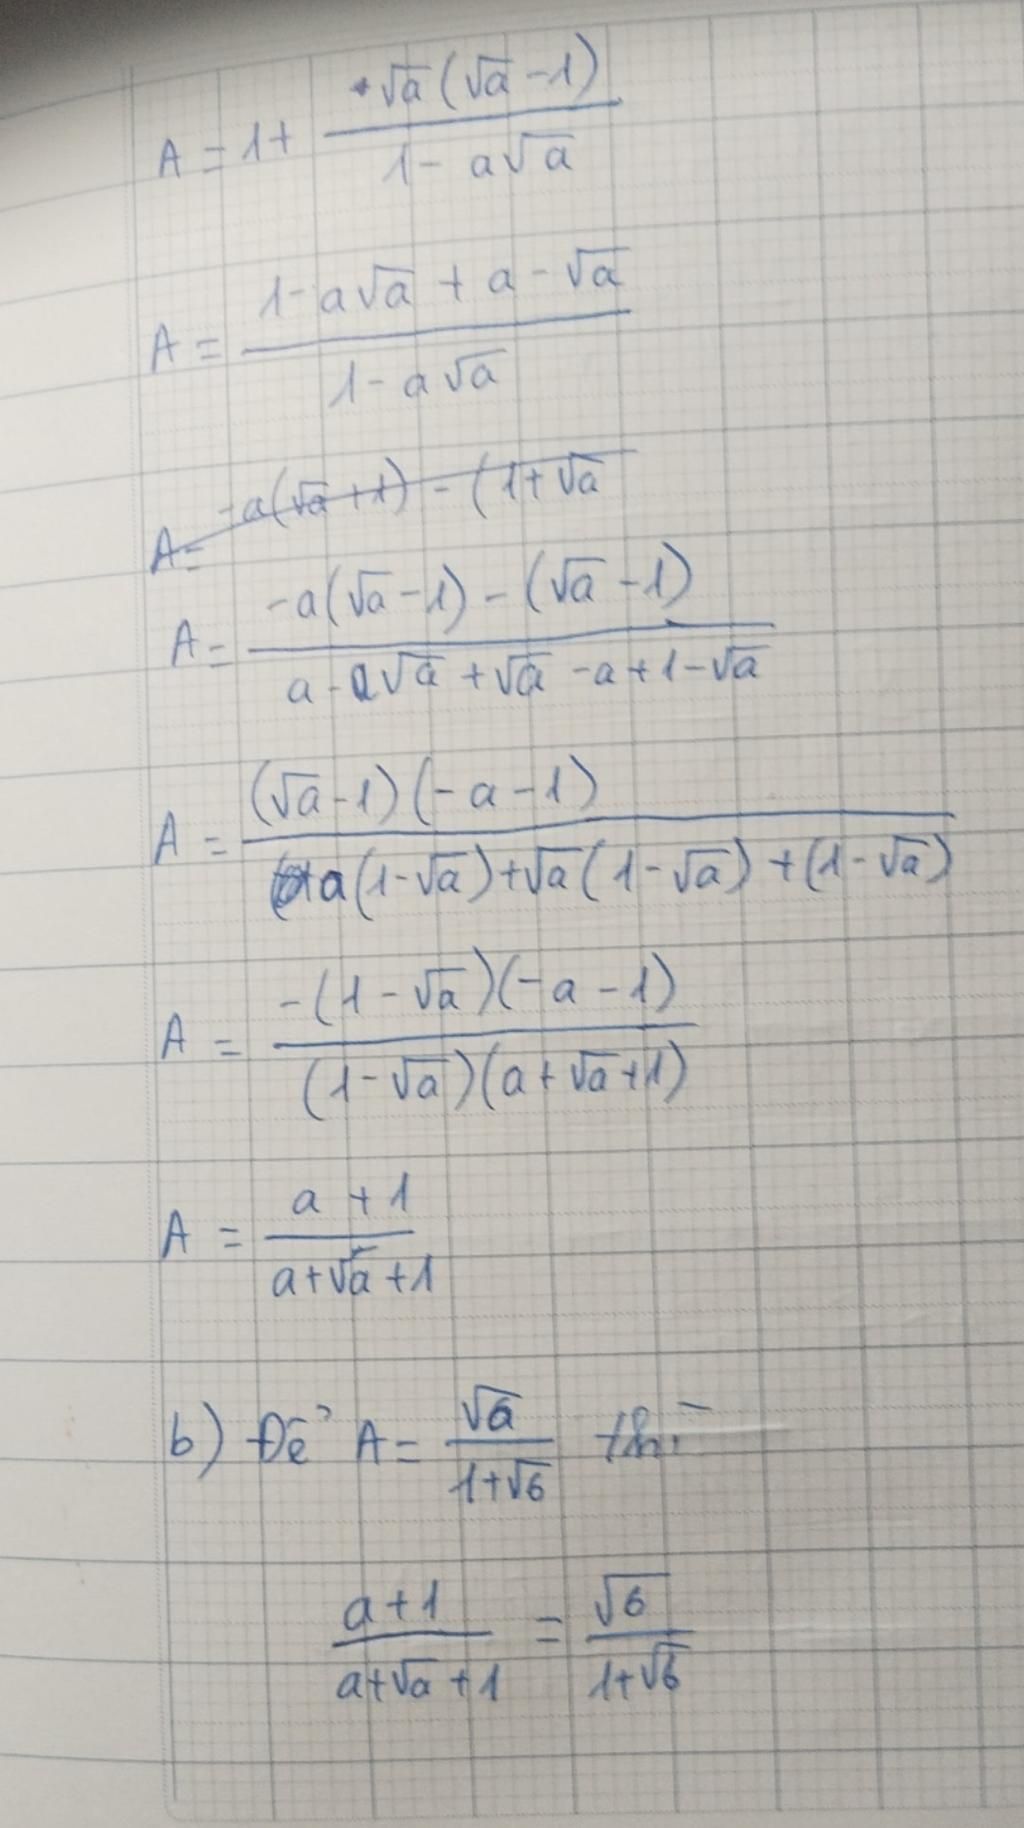 A = 1 + √a(√a - 1) / 1 - a√a
A = 1 - a√a + a - √a / 1 - a√a
A = -a(√a + 1) - (1 + √a
A = -a(√a - 1) - (√a - 1) / a - a√a + √a - a + 1 - √a
A = (√a - 1)(-a - 1) / a(1 - √a) + √a(1 - √a) + (1 - √a)
A = -(1 - √a)(-a - 1) / (1 - √a)(a + √a + 1)
A = a + 1 / a + √a + 1
b) Để A = √6 / 1 + √6 thì
a + 1 / a + √a + 1 = √6 / 1 + √6